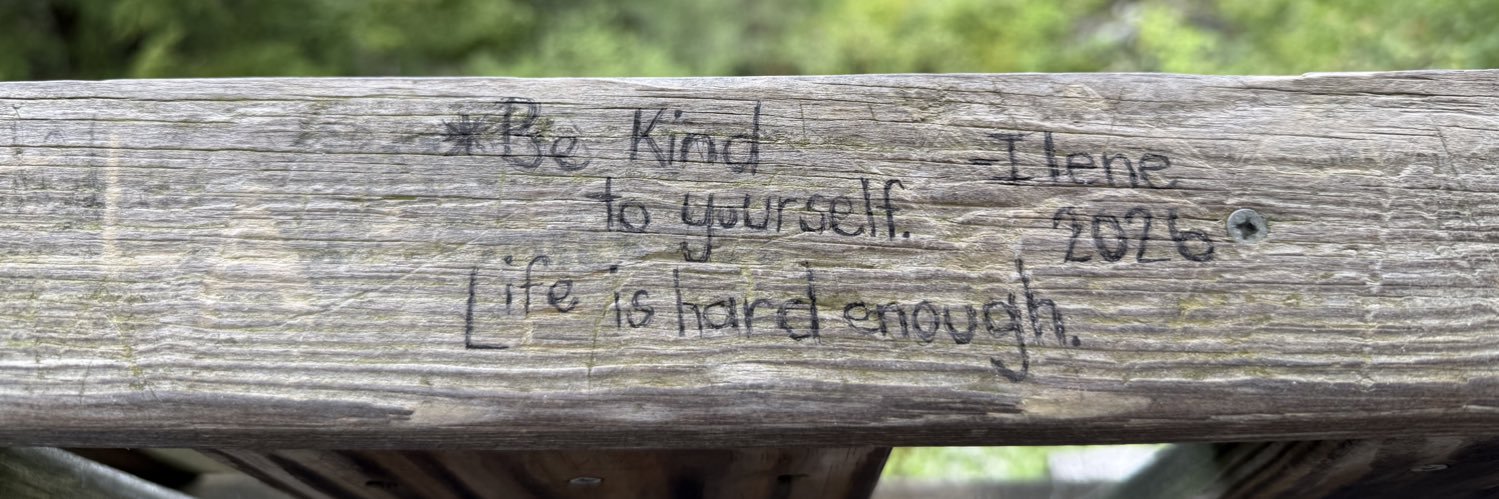 *Be Kind
to yourself.
Life is hard enough.
-Ilene
2026